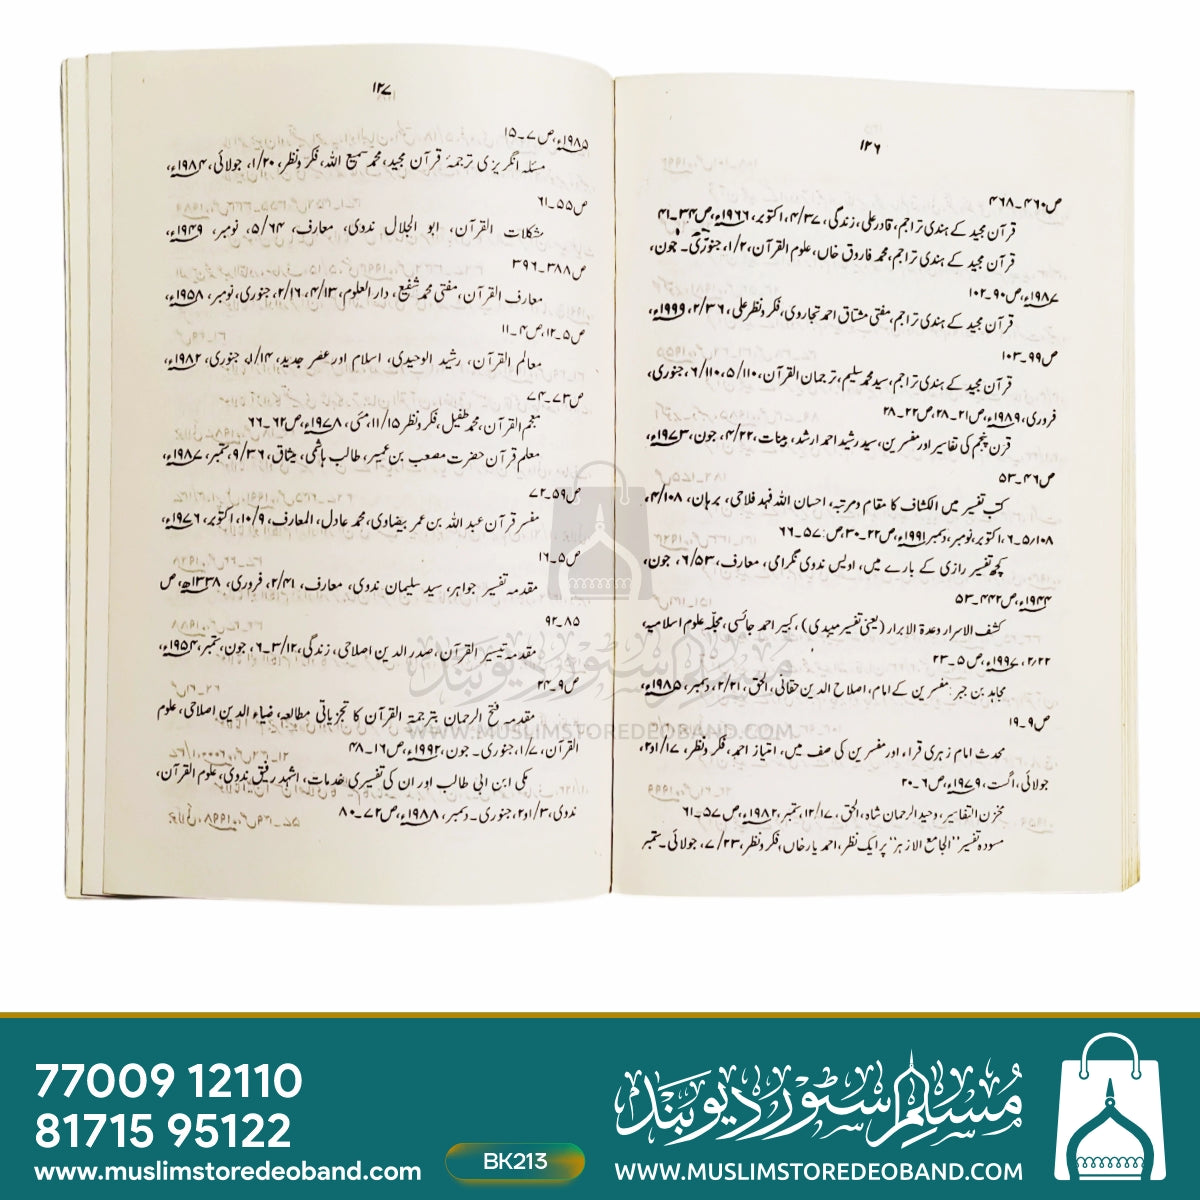 ۱۲۶
ص۴۶۰۔۴۶۸
قرآن مجید کے ہندی تراجم، قادر علی، زندگی، ۴/۳۷، اکتوبر، ۱۹۶۶ء، ص۳۴۔۴۱
قرآن مجید کے ہندی تراجم، محمد فاروق خاں، علوم القرآن، ۱/۲، جنوری۔ جون،
۱۹۸۷ء، ص۹۰۔۱۰۲
قرآن مجید کے ہندی تراجم، مفتی مشتاق احمد تجاروی، فکر و نظر علی، ۲/۳۶، ۱۹۹۹ء،
ص۹۹۔۱۰۳
قرآن مجید کے ہندی تراجم، سید محمد سلیم، ترجمان القرآن، ۵/۱۱۰، ۶/۱۱۰، جنوری،
فروری، ۱۹۸۹ء، ص۲۱۔۲۸، ص۲۲۔۲۸
قرن پنجم کی تفاسیر اور مفسرین، سید رشید احمد ارشد، بینات، ۴/۲۲، جون، ۱۹۷۳ء،
ص۴۶۔۵۳
کتب تفسیر میں الکشاف کا مقام و مرتبہ، احسان اللہ فہد فلاحی، برہان، ۴/۱۰۸،
۱۰۸/۵۔۶، اکتوبر، نومبر، دسمبر ۱۹۹۱ء، ص۲۲۔۳۰، ص: ۵۷۔۶۶
کچھ تفسیر رازی کے بارے میں، اویس ندوی نگرامی، معارف، ۶/۵۳، جون،
۱۹۴۴ء، ص۴۴۲۔۵۳
کشف الاسرار وعدۃ الابرار (یعنی تفسیر میبدی)، کبیر احمد جائسی، مجلہ علوم اسلامیہ،
۲/۲۲، ۱۹۹۷ء، ص۵۔۲۳
مجاہد بن جبر: مفسرین کے امام، اصلاح الدین حقانی، الحق، ۲/۲۱، دسمبر، ۱۹۸۵ء،
ص۹۔۱۹
محدث امام زہری قراء اور مفسرین کی صف میں، امتیاز احمد، فکر و نظر، ۱/۱۷ و۲،
جولائی، اگست، ۱۹۷۹ء، ص۶۔۲۰
مخزن التفاسیر، وحید الرحمان شاہ، الحق، ۱۲/۱۷، ستمبر، ۱۹۸۲ء، ص۵۷۔۶۱
مسودہ تفسیر ''الجامع الازہر'' پر ایک نظر، احمد یار خاں، فکر و نظر، ۷/۲۳، جولائی۔ستمبر
۱۲۷
۱۹۸۵ء، ص۷۔۱۵
مسئلہ انگریزی ترجمۂ قرآن مجید، محمد سمیع اللہ، فکر و نظر، ۱/۲۰، جولائی، ۱۹۸۴ء،
ص۵۵۔۶۱
مشکلات القرآن، ابو الجلال ندوی، معارف، ۵/۶۴، نومبر، ۱۹۴۹ء،
ص۳۸۸۔۳۹۶
معارف القرآن، مفتی محمد شفیع، دار العلوم، ۴/۱۳، ۲/۱۶، جنوری، نومبر، ۱۹۵۸ء،
ص۵۔۱۲، ص۴۔۱۱
معالم القرآن، رشید الوحیدی، اسلام اور عصر جدید، ۱/۱۴، جنوری، ۱۹۸۲ء،
ص۷۳۔۷۴
معجم القرآن، محمد طفیل، فکر و نظر ۱۱/۱۵، مئی، ۱۹۷۸ء، ص۶۲۔۶۶
معلم قرآن حضرت مصعب بن عمیر، طالب ہاشمی، میثاق، ۹/۳۶، ستمبر، ۱۹۸۷ء،
ص۵۹۔۷۲
مفسر قرآن عبد اللہ بن عمر بیضاوی، محمد عادل، المعارف، ۱۰/۹، اکتوبر، ۱۹۷۶ء،
ص۵۔۱۶
مقدمہ تفسیر جواہر، سید سلیمان ندوی، معارف، ۲/۴۱، فروری، ۱۳۳۸ھ، ص
۸۵۔۹۲
مقدمہ تیسیر القرآن، صدر الدین اصلاحی، زندگی، ۳/۱۲۔۶، جون، ستمبر، ۱۹۵۴ء،
ص۹۔۲۴
مقدمہ فتح الرحمان بترجمۃ القرآن کا تجزیاتی مطالعہ، ضیاء الدین اصلاحی، علوم
القرآن، ۱/۷، جنوری۔ جون، ۱۹۹۲ء، ص۱۶۔۴۸
مکی ابن ابی طالب اور ان کی تفسیری خدمات، اشہد رفیق ندوی، علوم القرآن،
ندوی، ۱/۳ و۲، جنوری۔ دسمبر، ۱۹۸۸ء، ص۷۲۔۸۰
مسلم سٹور دیوبند
WWW.MUSLIMSTOREDEOBAND.COM
77009 12110
81715 95122
www.muslimstoredeoband.com
BK213
مسلم سٹور دیوبند
WWW.MUSLIMSTOREDEOBAND.COM